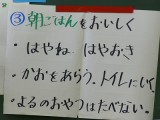 ③朝ごはんをおいしく
・はやね はやおき
・かおをあらう。トイレにいく
・よるのおやつはたべない。